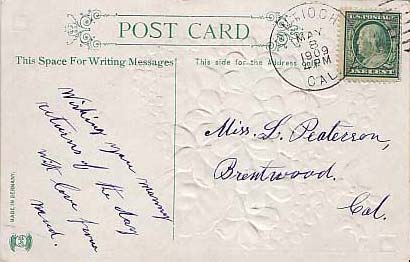 POST CARD
This Space For Writing Messages
This side for the Address
IOCH
MAY
8
1909
PM
CAL
U.S. POSTAGE
Wishing you manny
returns of the day
with love from
Miss. L. Peaterson,
Brentwood.
Cal.
MADE IN GERMANY.